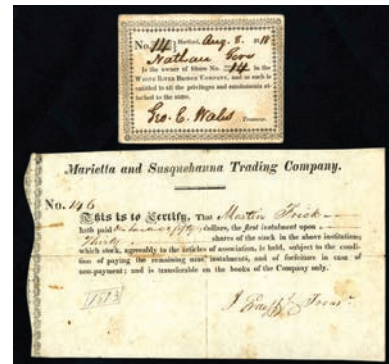 No. 14 Hartford, Aug. 8. 18
Nathan
Is the owner of Share No. 14 in the
White River Bridge Company, and as such is
entitled to all the privileges and emoluments at-
tached to the same.
Geo. E. Wales Treasurer.
Marietta and Susquehanna Trading Company.
No. 146
This is to Certify, That Martin Frick
hath paid One hundred fifty dollars, the first instalment upon
Thirty shares of the stock in the above institution;
which stock, agreeably to the articles of association, is held, subject to the condi-
tion of paying the remaining nine instalments, and of forfeiture in case of
non-payment; and is transferable on the books of the Company only.
1813
J Treasr.